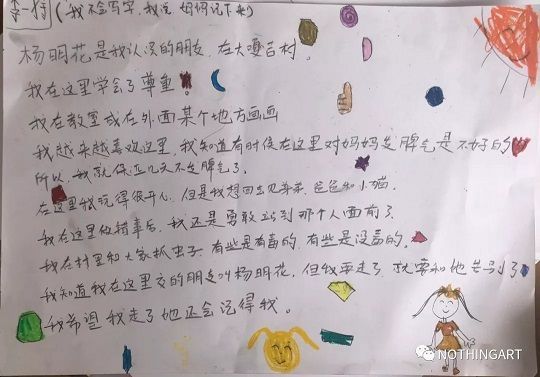 李一(我不会写字,我说 妈妈记下来)
杨明花是我认识的朋友,在大嘎吉村。
我在这里学会了尊重!
我在教室或在外面某个地方画画
我越来越喜欢这里,我知道有时候在这里对妈妈发脾气是不好的
所以,我就保证几天不发脾气了。
在这里我玩得很开心,但是我想回去见弟弟,爸爸和小猫。
我在这里做错事后,我还是勇敢站到那个人面前了.
我在村里和大家抓虫子,有些是有毒的,有些是没毒的,
我知道我在这里交的朋友叫杨明花,但我要走了,就要和她告别了
我希望我走了她还会记得我。
NOTHINGART